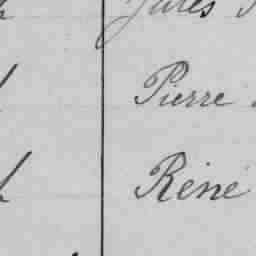 Jules
Pierre
Réné